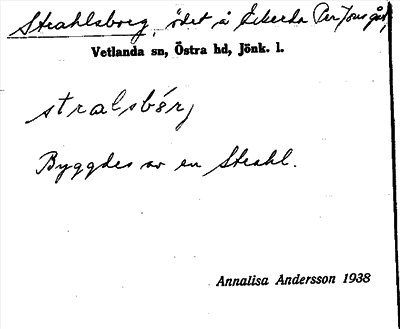 Strahlsborg, ödet å Ekerda Per Jons gård,
Vetlanda sn, Östra hd, Jönk. l.
stralsbórj
Byggdes av en Strahl.
Annalisa Andersson 1938